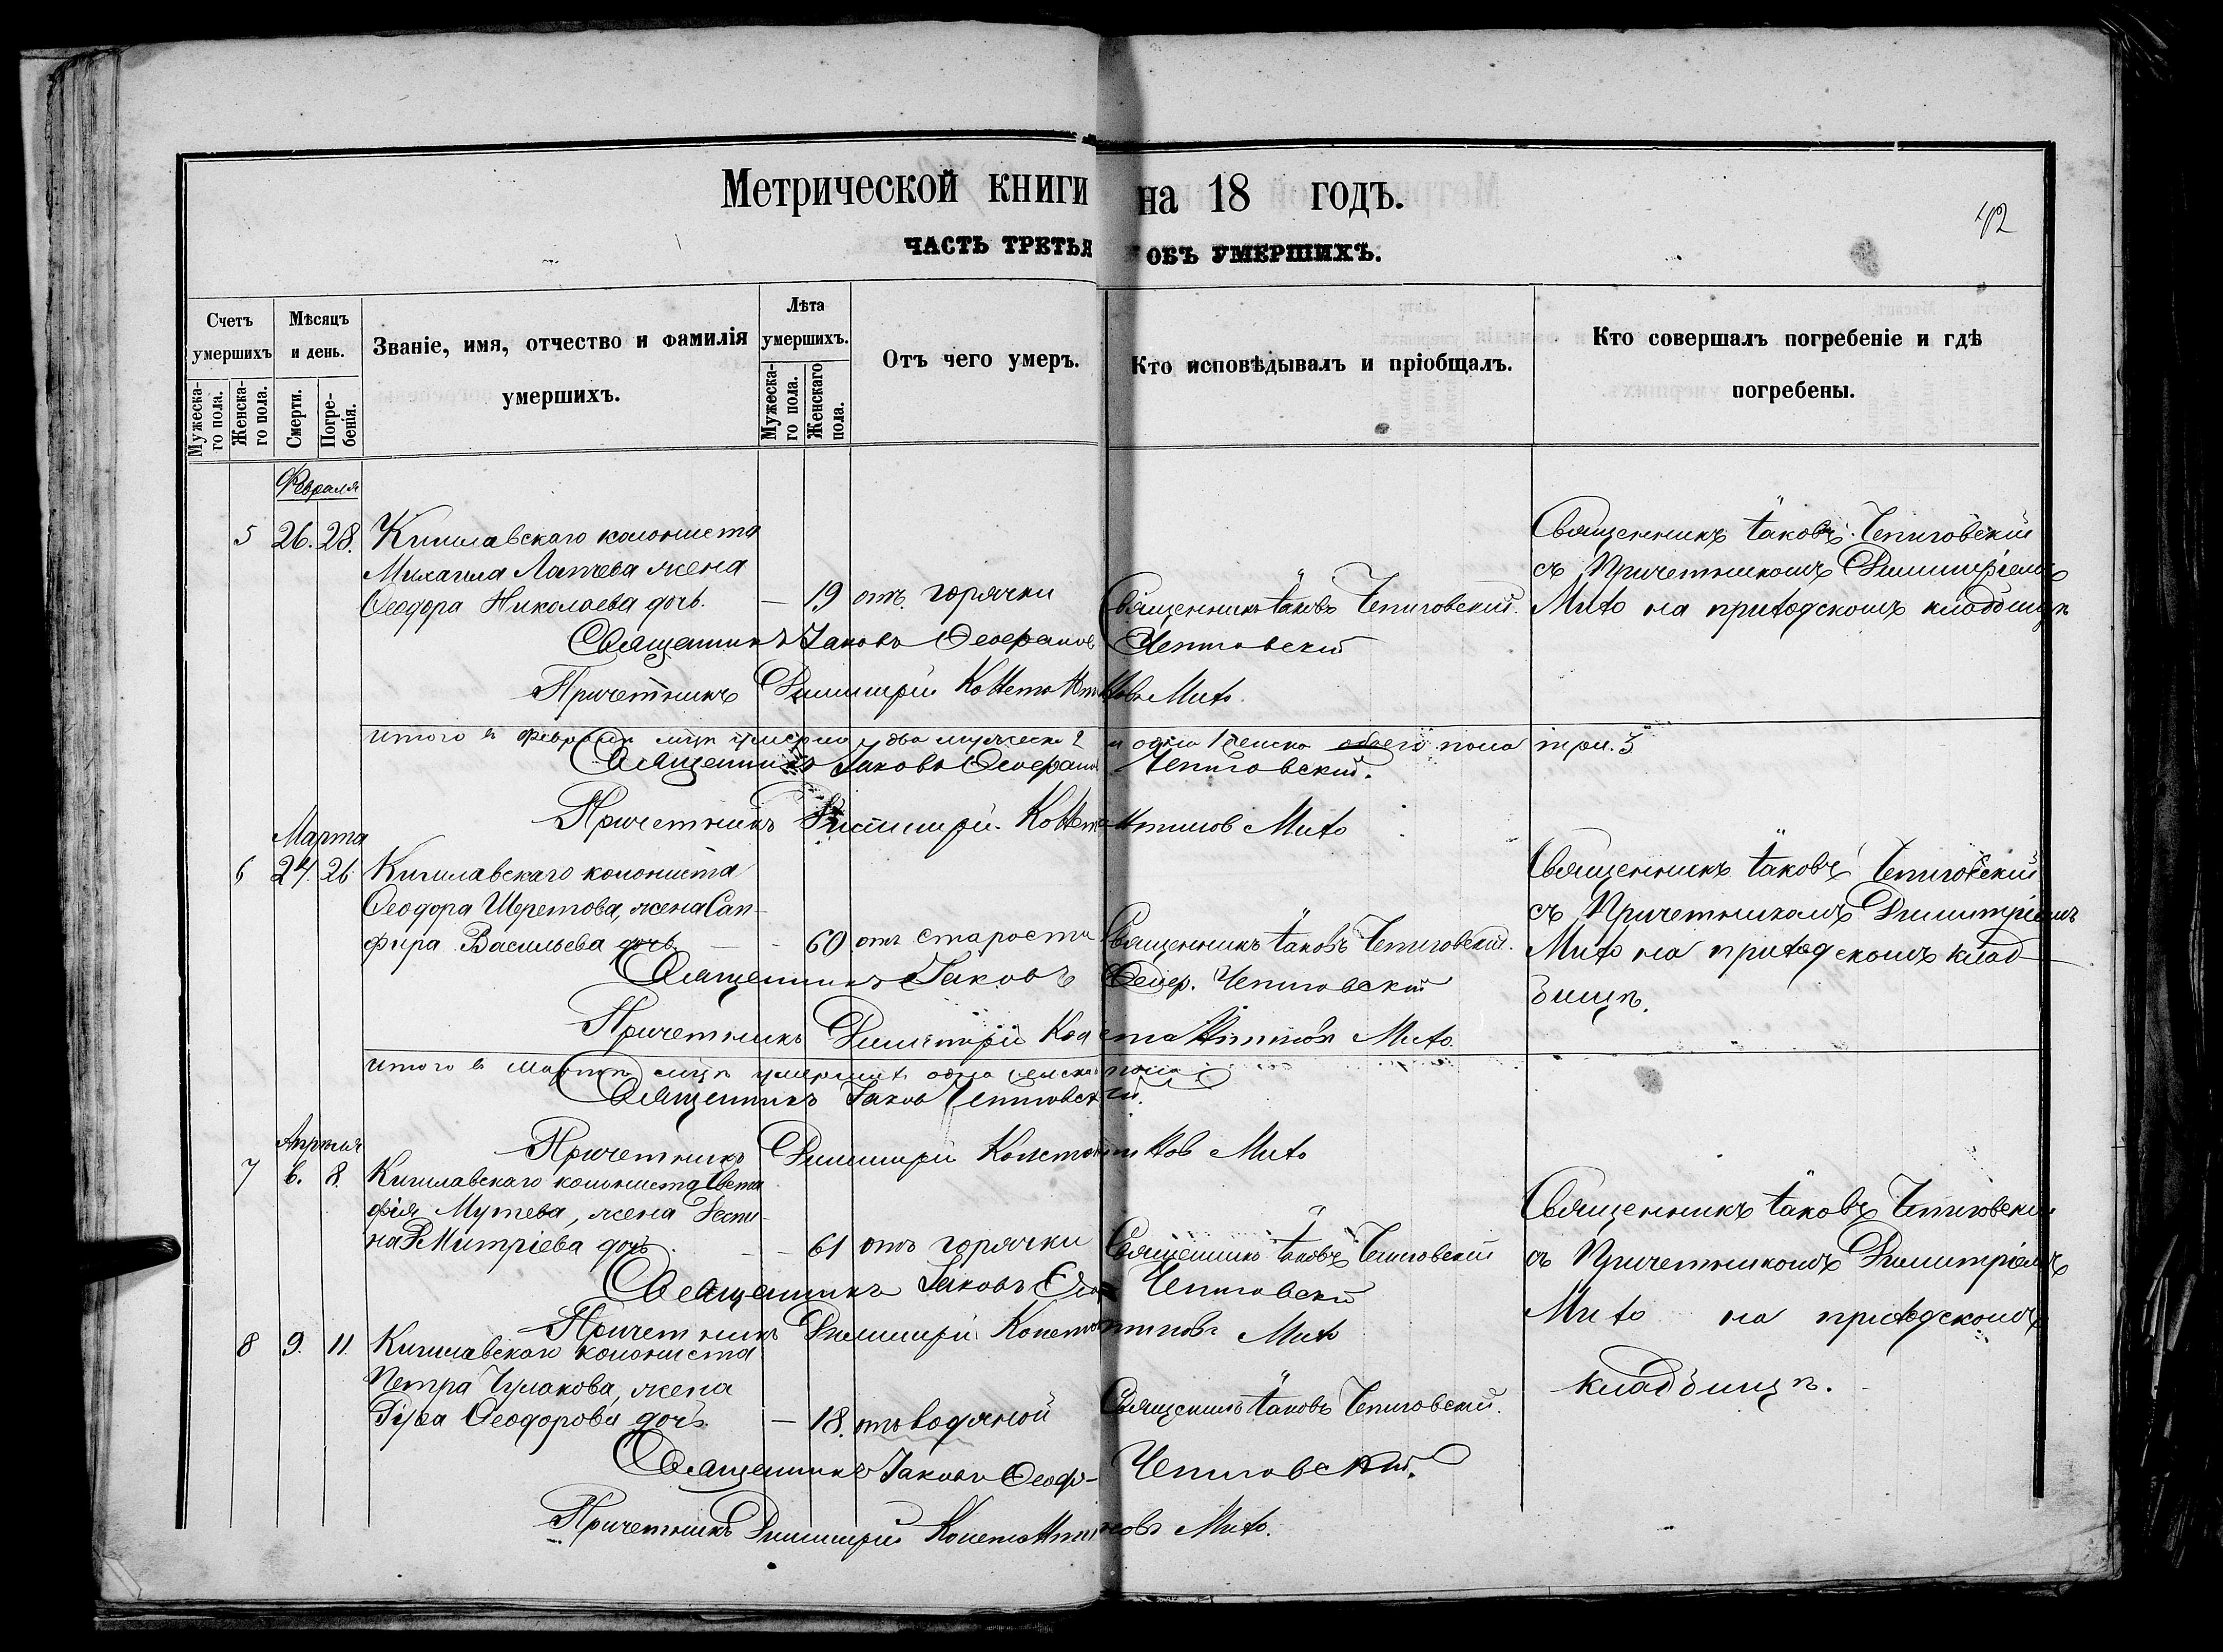 Метрической книги на 18 годъ.
42
ЧАСТЬ ТРЕТЬЯ ОБЪ УМЕРШИХЪ.
Счетъ умершихъ
Мужеска-го пола.
Женска-го пола.
Мѣсяцъ и день.
Смерти.
Погре-бенія.
Званіе, имя, отчество и фамилія
умершихъ.
Лѣта умершихъ.
Мужеска-го пола.
Женскаго пола.
Отъ чего умеръ.
Кто исповѣдывалъ и пріобщалъ.
Кто совершалъ погребеніе и гдѣ
погребены.
Февраля
5 26. 28. Кишлавскаго колониста
Михаила Латчева жена
Ѳеодора Николаева дочь. — 19 отъ горячки
Священникъ Іаковъ Чепиговскій.
Священникъ Іаковъ Чепиговскій
съ Причетникомъ Димитріемъ
Мито на приходскомъ кладбищѣ
Священникъ Іаковъ Чепиговскій
Причетникъ Димитрій Константиновъ Мито.
итого в февралѣ мцѣ умерло два мужеска 2 и одна 1 женска обоего пола три. 3
Священникъ Іаковъ Чепиговскій.
Причетникъ Димитрій Константинов Мито
Марта
6 24. 26. Кишлавскаго колониста
Ѳеодора Шеретова, жена Сап-
фира Васильева дочь — 60. отъ старости
Священникъ Іаковъ Чепиговскій.
Священникъ Іаковъ Чепиговскій
съ Причетникомъ Димитріемъ
Мито на приходскомъ клад-
бищѣ.
Священникъ Іаковъ Чепиговскій
Причетникъ Димитрій Константинов Мито.
итого в мартѣ мцѣ умершихъ одна женска пола 1
Священникъ Іаков Чепиговскій.
Причетникъ Димитрій Константинов Мито
Апрѣля
7 6. 8. Кишлавскаго колониста Евста
фія Мутева, жена Деспи-
на Дмитріева дочь — 61 отъ горячки
Священникъ Іаковъ Чепиговскій
Священникъ Іаковъ Чепиговскій
съ Причетникомъ Димитріемъ
Мито на приходскомъ
кладбищѣ.
Священникъ Іаковъ Чепиговскій
Причетникъ Димитрій Константиновъ Мито
8 9. 11. Кишлавскаго колониста
Петра Чулакова, жена
Ѳеодорова дочь — 18. отъ водяной
Священникъ Іаковъ Чепиговскій.
Священникъ Іаковъ Ѳеоф- Чепиговскій.
Причетникъ Димитрій Константиновъ Мито.